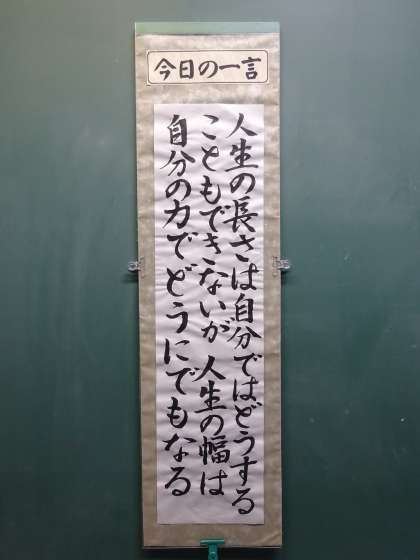 今日の一言
人生の長さは自分ではどうする
こともできないが人生の幅は
自分の力でどうにでもなる